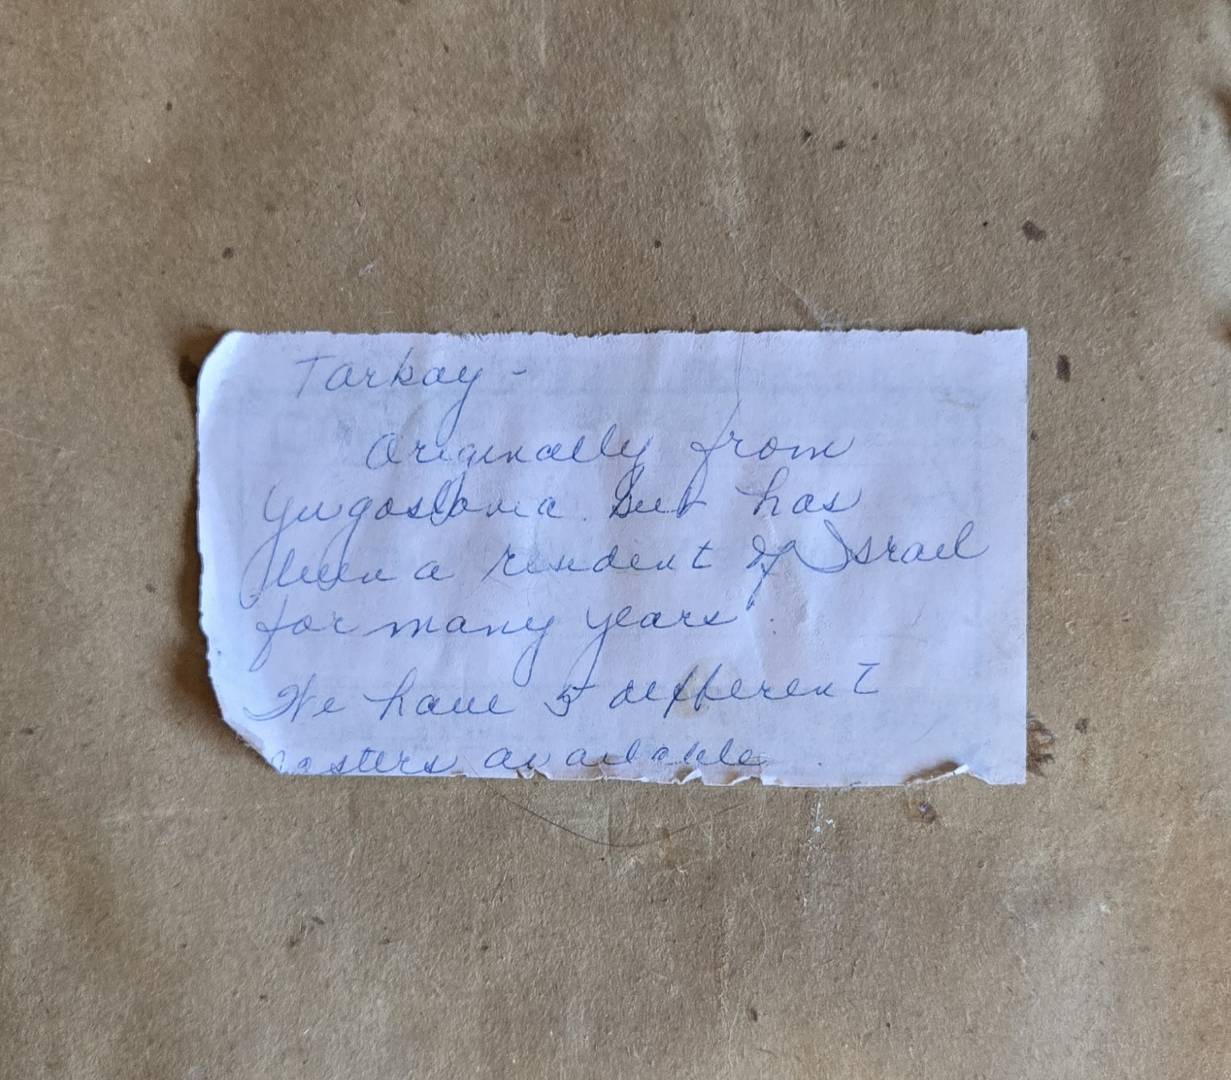 Tarkay -
Originally from
Yugoslavia but has
been a resident of Israel
for many years.
We have 5 different
posters available.